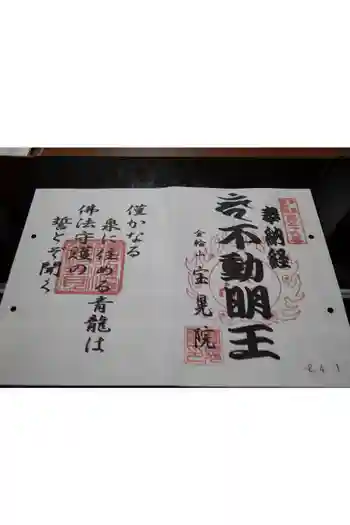 奉納経
不動明王
金輪山
宝晃院
2.4.1
僅かなる
泉に住める青龍は
佛法守護の
誓とぞ聞く